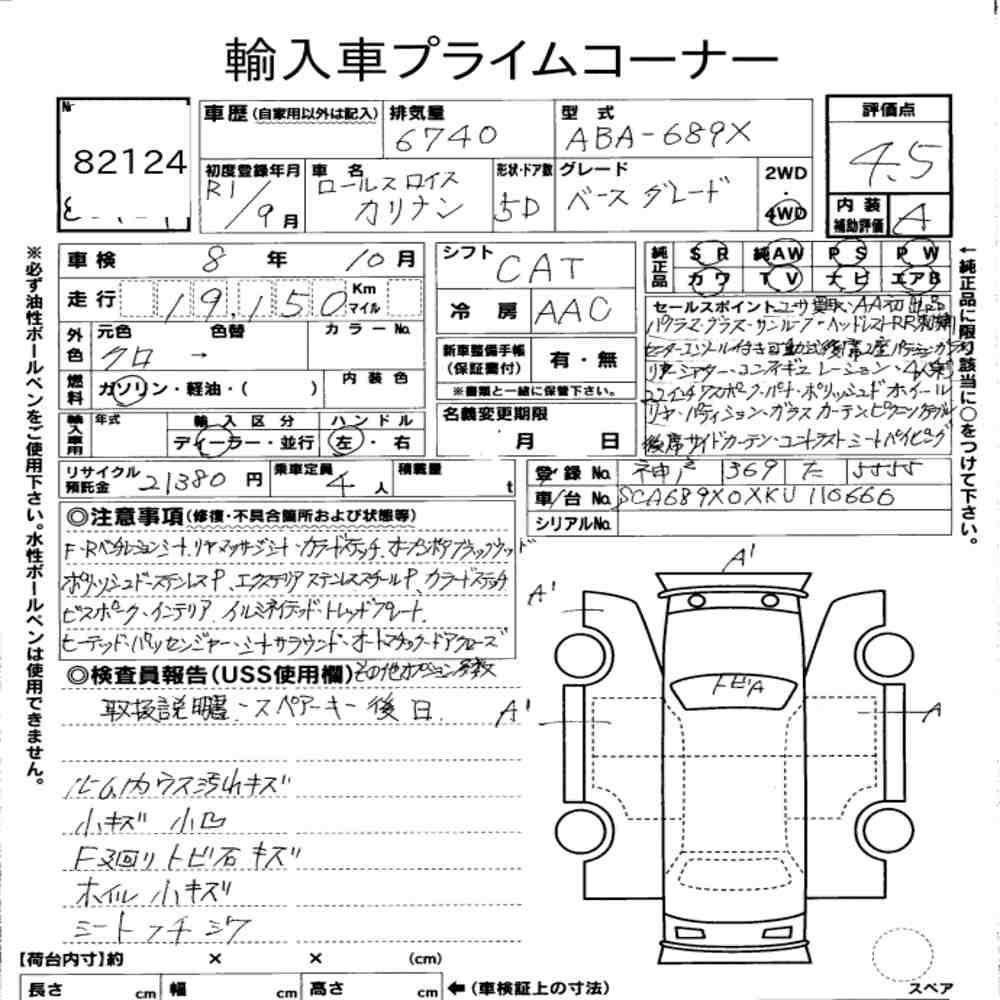 輸入車プライムコーナー
№
82124
車歴 (自家用以外は記入)
排気量
6740
型 式
ABA-689X
評価点
4.5
初度登録年月
R1/9月
車 名
ロールスロイス
カリナン
形状・ドア数
5D
グレード
ベースグレード
2WD
・
4WD
内装
補助評価
A
※必ず油性ボールペンをご使用下さい。水性ボールペンは使用できません。
車検 8 年 10 月
走行 19,150 Km
マイル
外色
元色
クロ
色替
→
カラーNo.
燃料
ガソリン・軽油・( )
内装色
輸入車用
年式
輸入区分
ディーラー・並行
ハンドル
左・右
リサイクル
預託金 21380 円
乗車定員
4 人
積載量
t
シフト
CAT
冷房 AAC
新車整備手帳
(保証書付) 有・無
※書類と一緒に保管下さい。
名義変更期限
月 日
純正品
SR 純AW PS PW
カワ TV ナビ エアB
セールスポイント ユーザ買取・AA初出品
リヤシアター・コンフィギュレーション・4人乗
22インチワスポークパートポリッシュドホイール
リヤ・パティション・ガラスカーテンピクニックテーブル
後席サイドカーテン・コントラストシートパイピング
←純正品に限り該当に○をつけて下さい。
登録No. 神戸 369 た 5555
車/台No. SCA689X0XKU110666
シリアルNo.
◎注意事項(修復・不具合箇所および状態等)
F・Rベンチレーションシート、リヤマッサージシート・カラードステッチ、オープンポアブラックウッド
ポリッシュドーステンレスP、エクステリアステンレススチールP、カラードステッチ
ビスポーク・インテリア、イルミネイテッド・トレッドプレート、
ヒーテッド・パッセンジャー・シートサラウンド・オートマチック・ドアクローズ
◎検査員報告(USS使用欄) その他オプション多数
取扱説明書・スペアーキー後日
ルーム内ウス汚れキズ
小キズ 小凹
F廻りトビ石キズ
ホイル小キズ
シートフチシワ
A'
A'
トビA
A'
A
【荷台内寸】約 × × (cm)
長さ cm 幅 cm 高さ cm ←(車検証上の寸法)
スペア